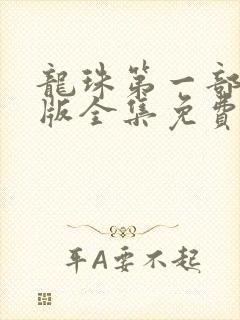 龍珠第一部
版全集免費
平A要不起